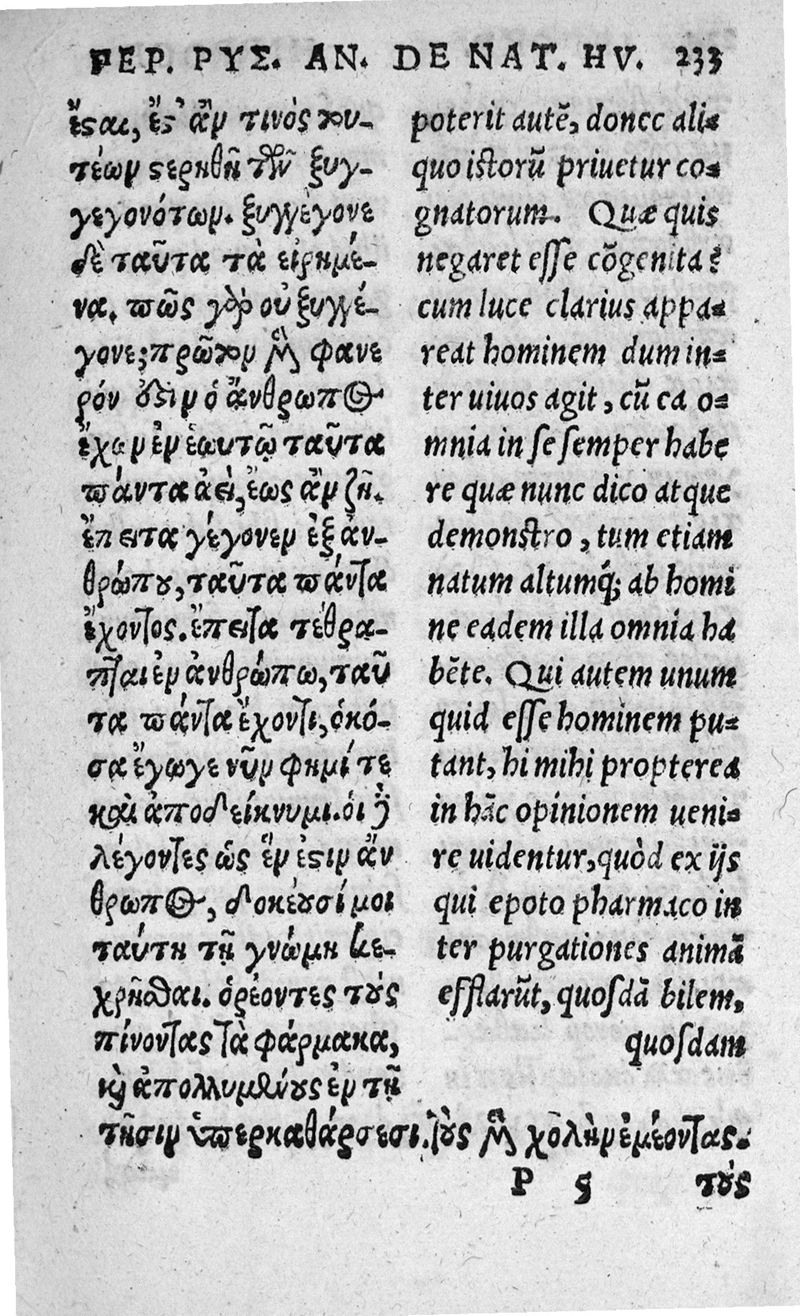 ΡΕΡ. ΡΥΣ. ΑΝ. DE NAT. HV. 233
ἔςαι, ἔς' ἄν τινὸς του-
τέων ςερηθῆ τῶν ξυγ-
γεγονότων. ξυγγέγονε
δὲ ταῦτα τὰ εἰρημέ-
να. πῶς γὰρ οὐ ξυγγέ-
γονε; πρῶτον μὲν φανε
ρόν ὅδιν ὁ ἄνθρωπος
ἔχων ἐν ἑωυτῷ ταῦτα
πάντα ἀεὶ, ἕως ἂν ζῆ.
ἔπειτα γέγονεν ἐξ ἀν-
θρώπου, ταῦτα πάντα
ἔχοντος. ἔπειτα τέθρα-
πται ἐν ἀνθρώπω, ταῦ
τα πάντα ἔχοντι, ὁκό-
σα ἔγωγε νῦν φημί τε
καὶ ἀποδείκνυμι. οἱ δὲ
λέγοντες ὡς ἕν ἐςιν ἄν
θρωπος, δοκέουσί μοι
ταύτη τῇ γνώμη κε-
χρῆσθαι. ὁρέοντες τοὺς
πίνοντας τὰ φάρμακα,
καὶ ἀπολλυμένους ἐν τῇ
τῇσιν ὑπερκαθάρσεσι. τοὺς μὲν χολὴν ἐμέοντας.
poterit autē, donec ali-
quo istorũ priuetur co-
gnatorum. Quæ quis
negaret esse cõgenita?
cum luce clarius appa-
reat hominem dum in-
ter uiuos agit, cũ ea o-
mnia in se semper habe
re quæ nunc dico atque
demonstro, tum etiam
natum altumq́; ab homi
ne eadem illa omnia ha
bēte. Qui autem unum
quid esse hominem pu-
tant, hi mihi propterea
in hāc opinionem ueni-
re uidentur, quòd ex ijs
qui epoto pharmaco in
ter purgationes animā
efflarūt, quosdā bilem,
quosdam
P 5 τοὺς